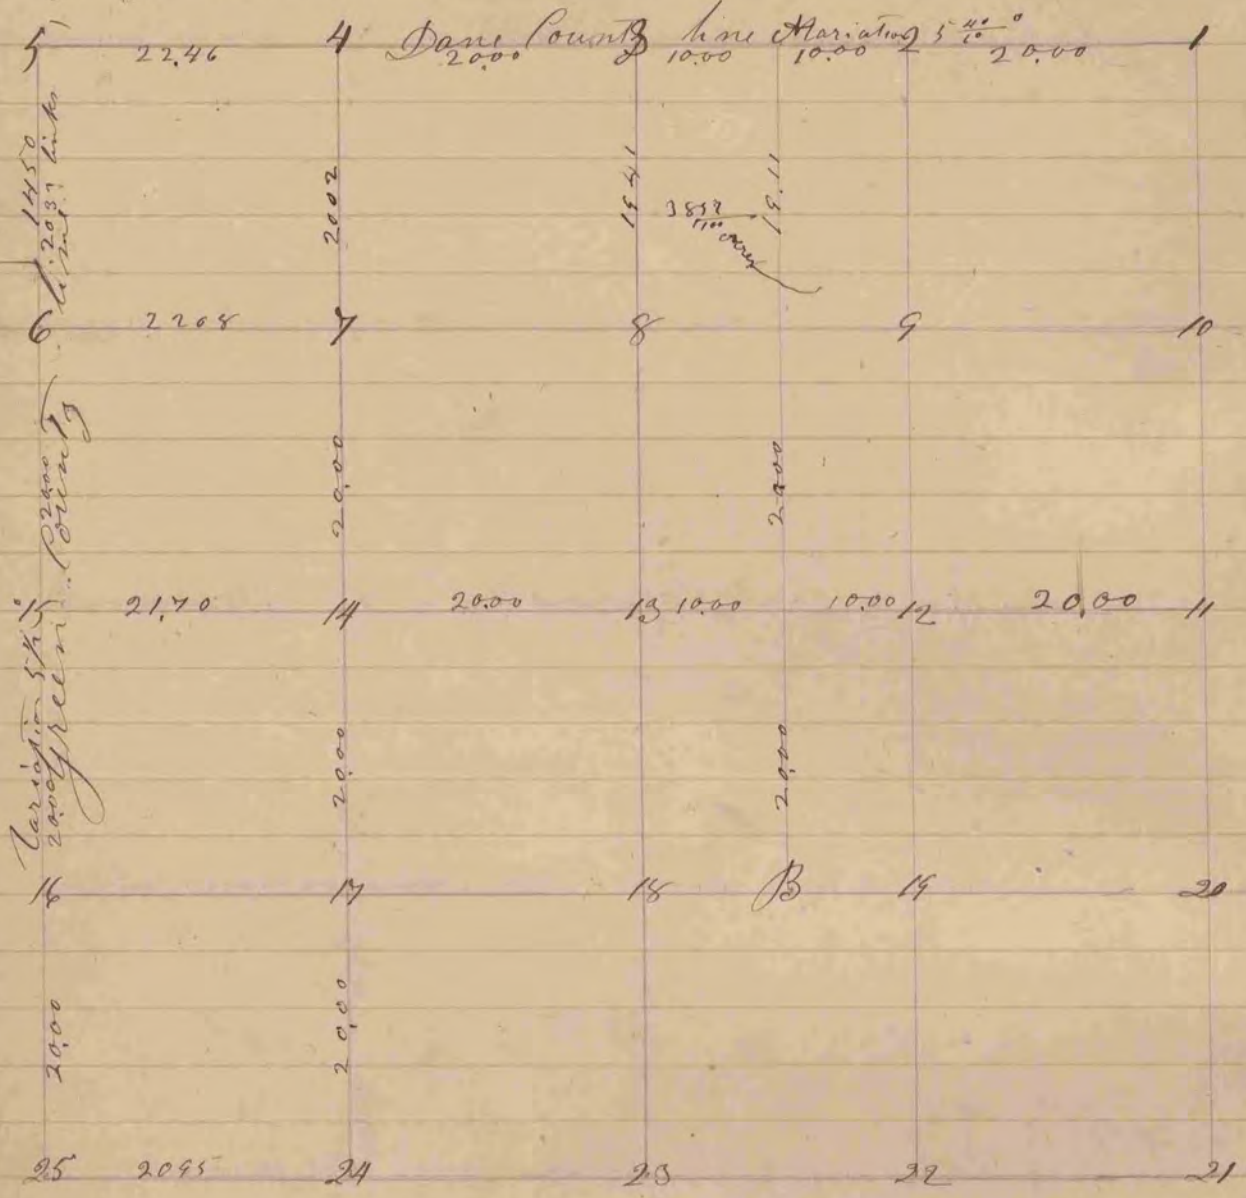 5 22.46 4 Dane County 3 line Variation 2 5 40/60 ° 1
20.00 10.00 10.00 20.00
1450
2033 links
2002
1941
19.11
acres
6 2208 7 8 9 10
2000
Green County
20,00
2000
15 21,70 14 20.00 13 10.00 10.00 12 20,00 11
Variation 5 1/2 °
2000
20,00
20,00
16 17 18 B 19 20
20,00
20,00
25 2095 24 23 22 21